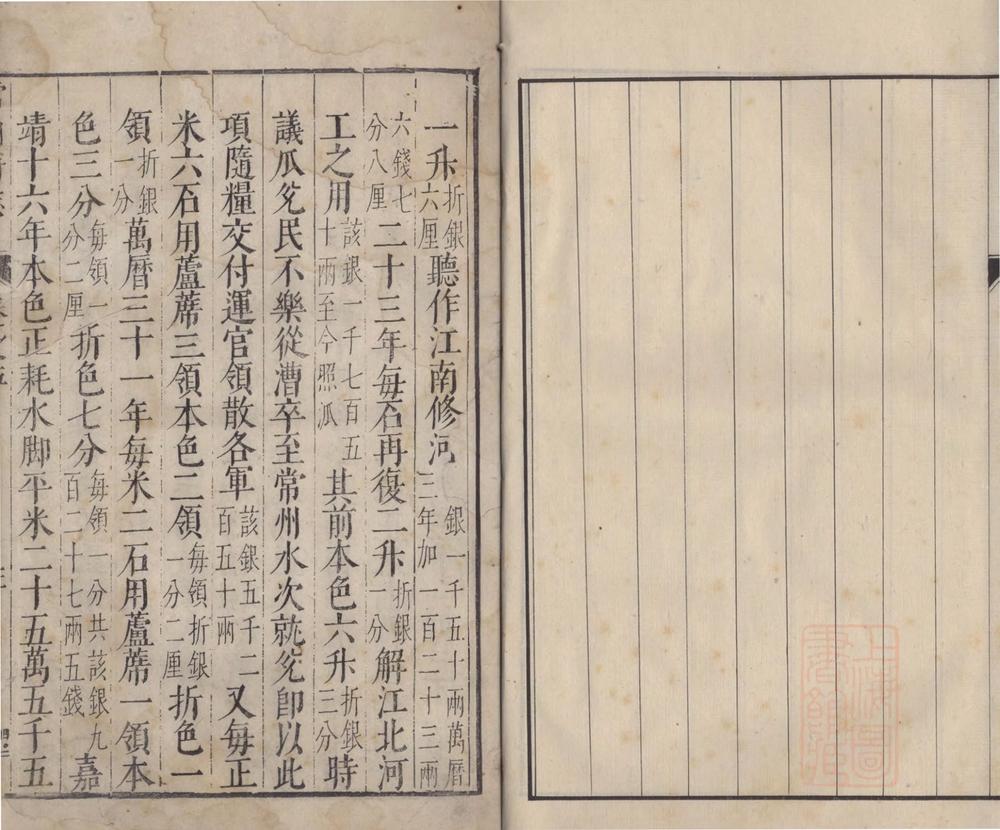 一升折銀六厘聽作江南修河銀一千五十兩萬曆三年加一百二十三兩
六錢七分八厘二十三年每石再復二升折銀一分解江北河
工之用該銀一千七百五十兩至今照瓜其前本色六升折銀三分時
議瓜兊民不樂從漕卒至常州水次就兊卽以此
項隨糧交付運官領散各軍該銀五千二百五十兩又每正
米六石用蘆蓆三領本色二領每領折銀一分二厘折色一
領折銀一分萬曆三十一年每米二石用蘆蓆一領本
色三分每領一分二厘折色七分每領一分共該銀九百二十七兩五錢嘉
靖十六年本色正耗水脚平米二十五萬五千五
上海圖書館藏